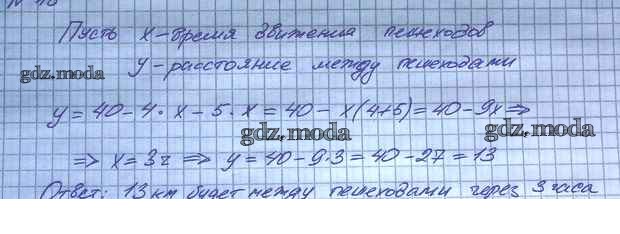 Пусть x - время движения пешеходов
y - расстояние между пешеходами
gdz.moda
y = 40 - 4 · x - 5 · x = 40 - x(4+5) = 40 - 9x ⇒
gdz.moda
gdz.moda
⇒ x = 3 ч ⇒ y = 40 - 9·3 = 40 - 27 = 13
Ответ: 13 км будет между пешеходами через 3 часа